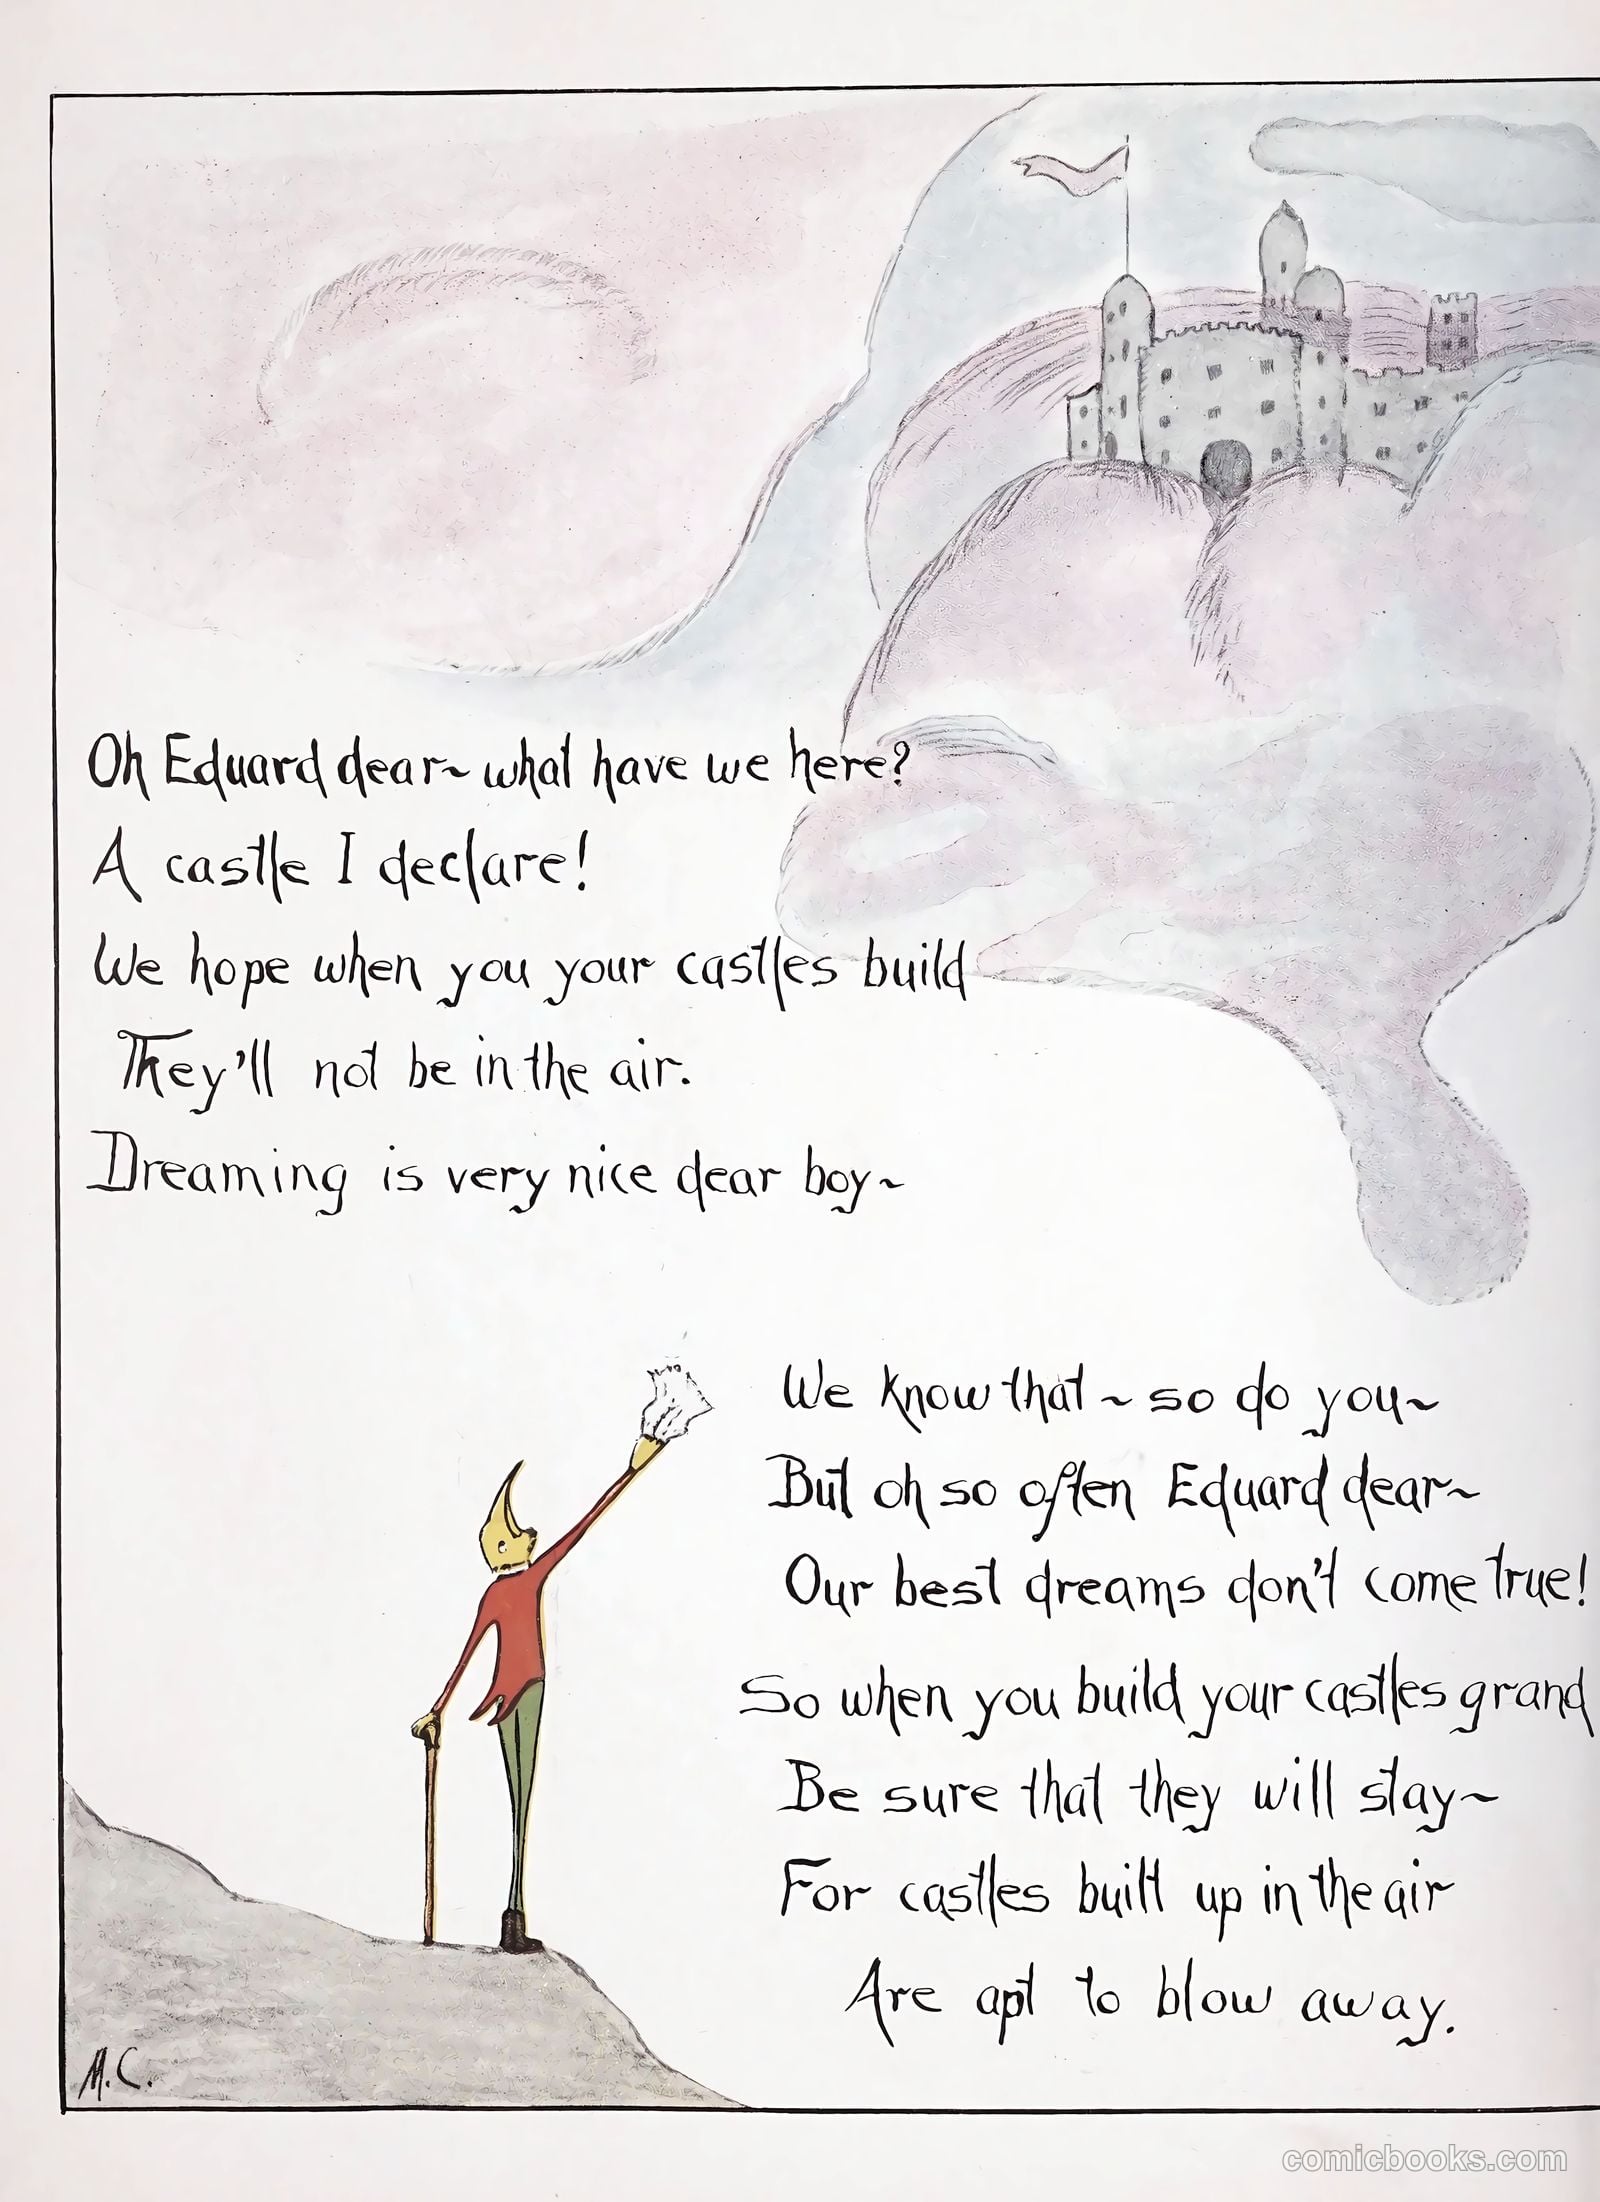 Oh Eduard dear~ what have we here?
A castle I declare!
We hope when you your castles build
They'll not be in the air.
Dreaming is very nice dear boy~
We know that ~ so do you~
But oh so often Eduard dear~
Our best dreams don't come true!
So when you build your castles grand
Be sure that they will stay~
For castles built up in the air
Are apt to blow away.
M.C.
comicbooks.com